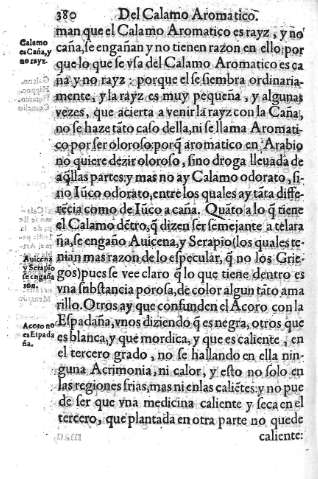 380 Del Calamo Aromatico.
man que el Calamo Aromatico es rayz, y no
caña, se engañan y no tienen razon en ello: por
que lo que se vsa del Calamo Aromatico es ca
ña y no rayz: porque el se siembra ordinaria-
mente, y la rayz es muy pequeña, y algunas
vezes, que acierta a venir la rayz con la Caña,
no se haze tãto caso della, ni se llama Aromati-
co por ser oloroso: porq̃ aromatico en Arabio
no quiere dezir oloroso, sino droga lleuada de
aq̃llas partes: y mas no ay Calamo odorato, si-
no Iunco odorato, entre los quales ay tãta diffe-
rẽcia como de Iũco a caña. Quãto a lo q̃ tiene
el Calamo dẽtro, q̃ dizen ser semejante a telara
ña, se engaño Auicena, y Serapio (los quales te-
nian mas razon de lo especular, q̃ no los Grie-
gos) pues se vee claro q̃ lo que tiene dentro es
vna substancia porosa, de color algun tãto ama
rillo. Otros ay que confunden el Acoro con la
Espadaña, vnos diziendo q̃ es negra, otros que
es blanca, y que mordica, y que es caliente, en
el tercero grado, no se hallando en ella nin-
guna Acrimonia, ni calor, y esto no solo en
las regiones frias, mas ni en las caliẽtes: y no pue
de ser que vna medicina caliente y seca en el
tercero, que plantada en otra parte no quede
caliente:
Calamo
es Caña, y
no rayz.
Auicena
y Serapio
se engaña
ron.
Acoro no
es Espada
ña.